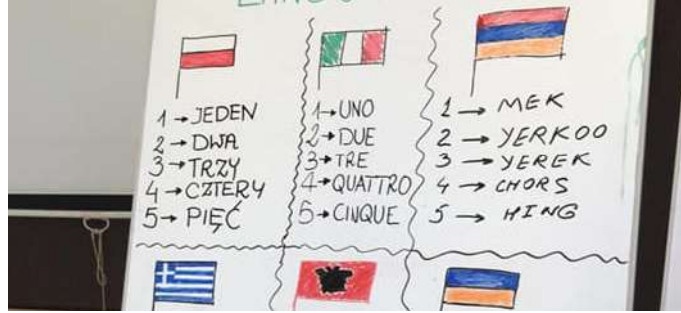 1→JEDEN
2→DWA
3→TRZY
4→CZTERY
5→PIĘĆ
1→UNO
2→DUE
3→TRE
4→QUATTRO
5→CINQUE
1→MEK
2→YERKOO
3→YEREK
4→CHORS
5→HING